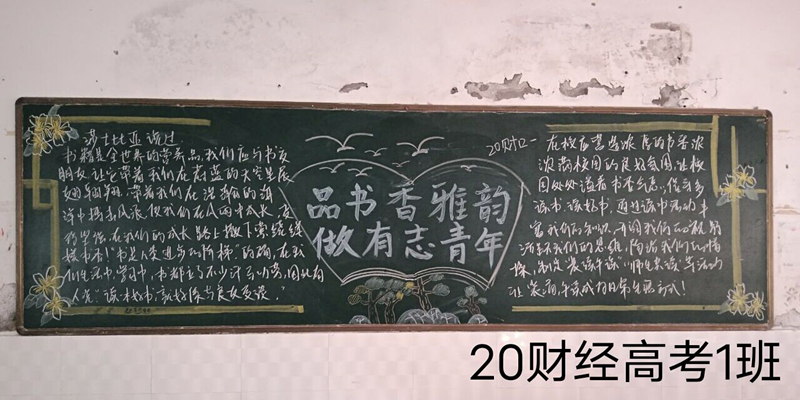 莎士比亚说过
书籍是全世界的营养品,我们应与书交
朋友,让它带着我们在蔚蓝的天空里展
翅翱翔,带着我们在浩瀚的海
洋中搏击风浪,使我们在风雨中成长,
在我们的成长路上撒下
书本!"书是人类进步的阶梯"的确,在我
们生活中,学习中,书都立下不少汗马功劳,因此有
人说"读本好书,就好像与良友交谈。"
品书香雅韵
做有志青年
20财口一
在校应营造浓厚的书香
满校园的良好氛围,让校
园处处溢着书香气息,倡导多
读书、读好书,通过读书活动丰
富我们的知识,开阔我们的视野
活跃我们的思维,陶冶我们的情
操,"师生共读"等活动
让
20财经高考1班